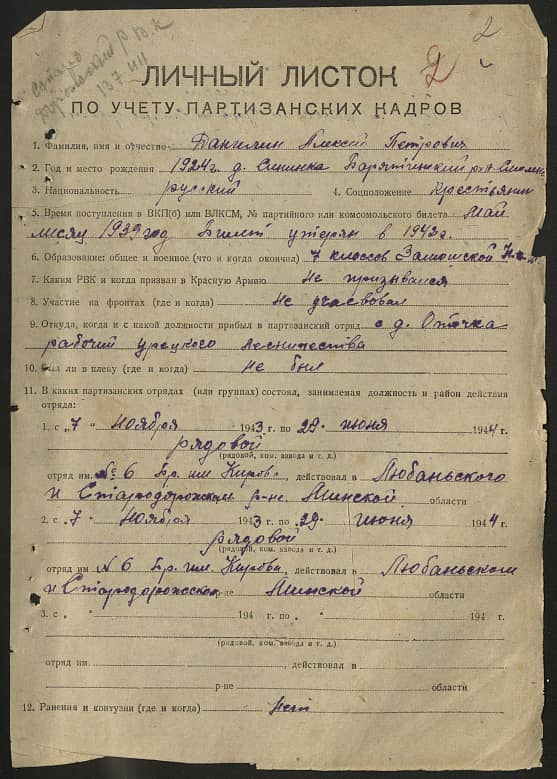 2
2
Р В К
ЛИЧНЫЙ ЛИСТОК
ПО УЧЕТУ ПАРТИЗАНСКИХ КАДРОВ
1. Фамилия, имя и отчество Алексей Петрович
2. Год и место рождения 1924г. д.
3. Национальность русский 4. Соцположение Крестьянин
5. Время поступления в ВКП(б) или ВЛКСМ, № партийного или комсомольского билета Май
месяц 1939 год Билет утерян в 1942г.
6. Образование: общее и военное (что и когда окончил) 7 классов
7. Каким РВК и когда призван в Красную Армию Не призывался
8. Участие на фронтах (где и когда) Не участвовал
9. Откуда, когда и с какой должности прибыл в партизанский отряд с д.
рабочий урецкого лесничества
10. Был ли в плену (где и когда) Не был
11. В каких партизанских отрядах (или группах) состоял, занимаемая должность и район действия
отряда:
1. с „7 " Ноября 1943 г. по „29 " июня 1944 г.
рядовой
(рядовой, ком. взвода и т. д.)
отряд им. №6 бр. им. Кирова, действовал в Любаньского
и Стародорожском р-не Минской области
2. с „7 " Ноября 1943 г. по „29 " июня 1944 г.
рядовой
(рядовой, ком. взвода и т. д.)
отряд им №6 бр. им. Кирова, действовал в Любаньском
и Стародорожском р-не Минской области
3. с „ " 194 г. по „ " 194 г.
(рядовой, ком. взвода и т. д.)
отряд им. действовал в
р-не области
12. Ранения и контузии (где и когда) Нет